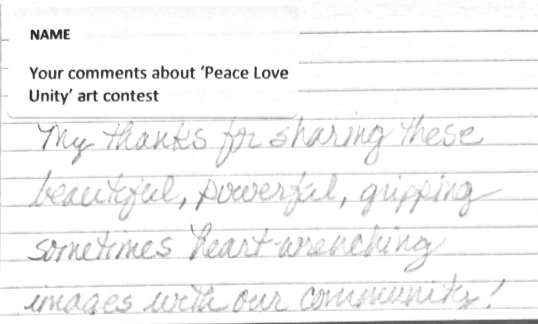 NAME
Your comments about ‘Peace Love
Unity’ art contest
My thanks for sharing these
beautiful, powerful, gripping
sometimes heart-wrenching
images with our community!